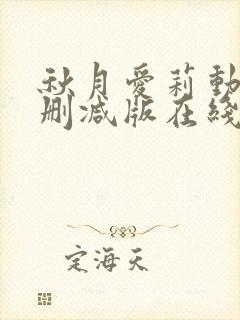 秋月爱莉動
删减版在綫
定海天